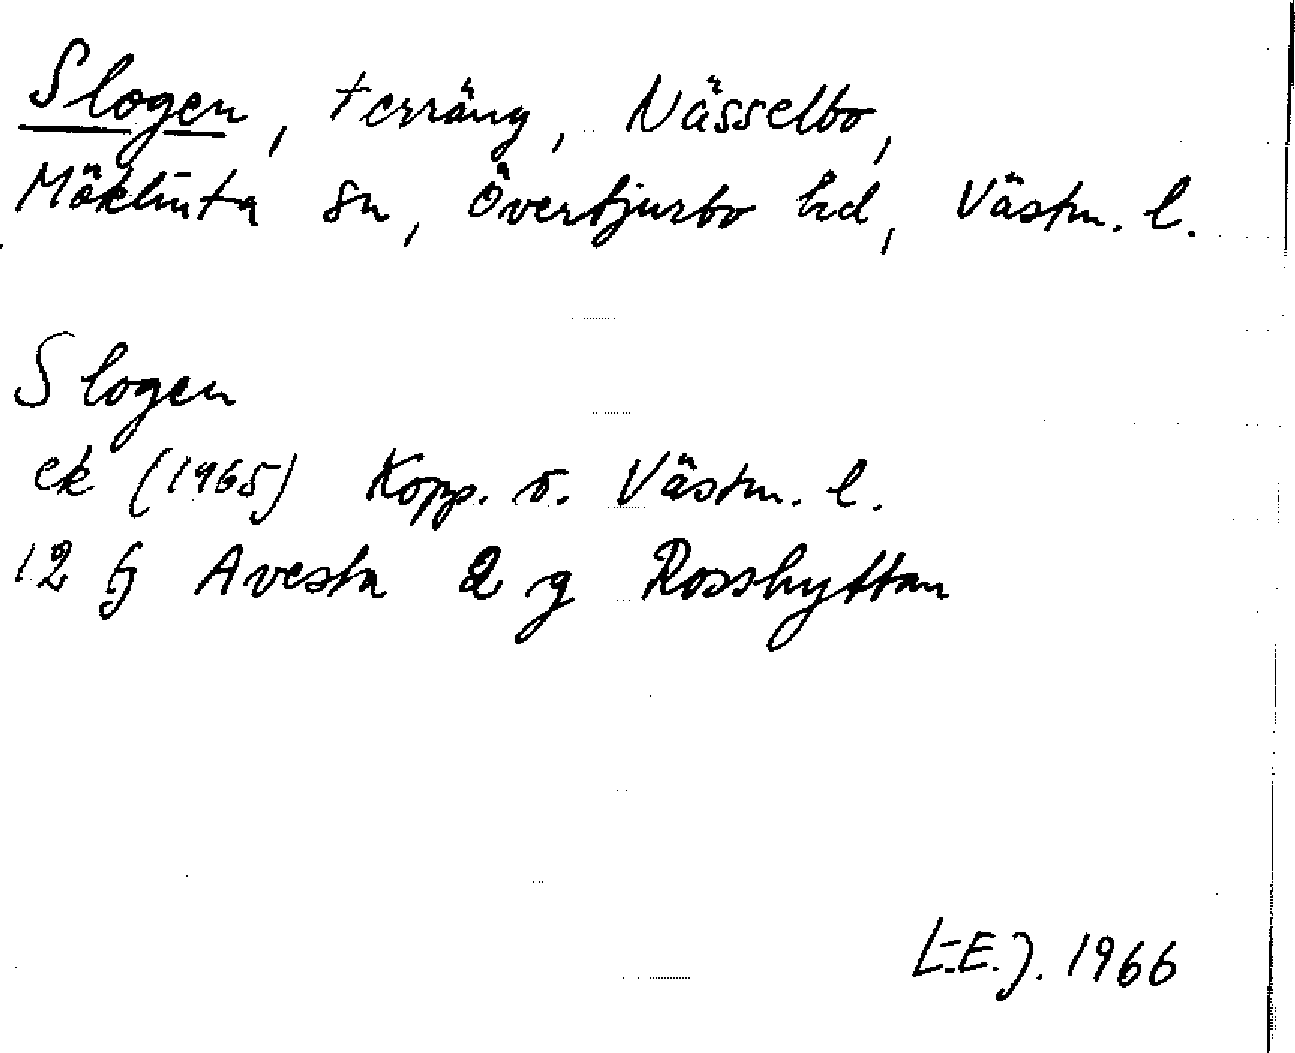 Slogen, terräng, Nässelbo,
Möklinta sn, Övertjurbo hd, Västm. l.
Slogen
ek (1965) Kopp. o. Västm. l.
12 G Avesta 2 g Rosshyttan
L-E.J. 1966